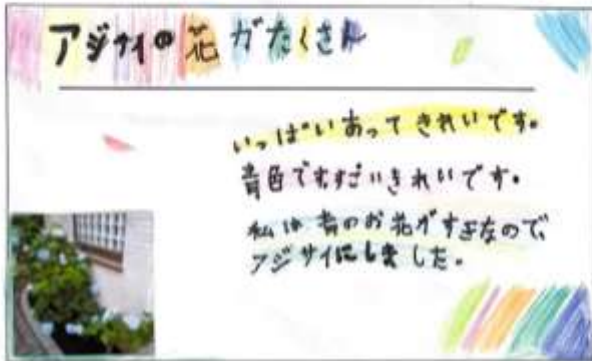 アジサイの花がたくさん
いっぱいあってきれいです。
青色ですごいきれいです。
私は青のお花がすきなので、
アジサイにしました。